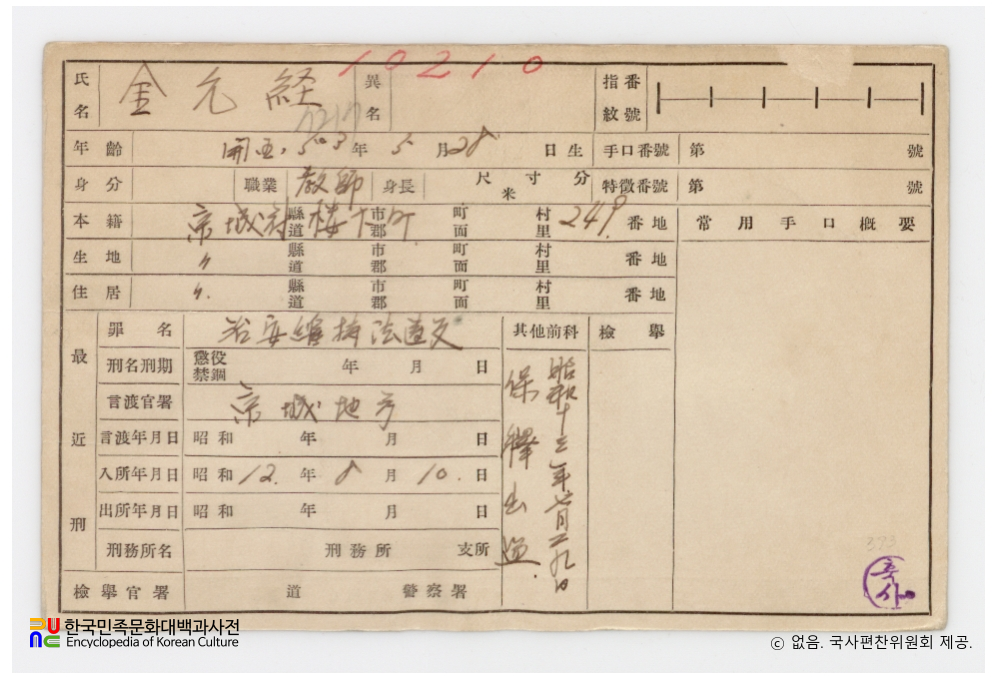 10210
氏名 金元経 異名 指紋番號
年齡 開国 503年 5月28日生 手口番號 第 號
身分 職業 教師 身長 尺 寸 分 米 特徵番號 第 號
本籍 京城府 縣道 楼下町 市郡 町面 村里 249 番地 常用手口概要
生地 〃 縣道 市郡 町面 村里 番地
住居 〃 縣道 市郡 町面 村里 番地
最近刑
罪名 治安維持法違反 其他前科 檢擧
刑名刑期 懲役 禁錮 年 月 日
言渡官署 京城地
言渡年月日 昭和 年 月 日
入所年月日 昭和 12.年 8月 10.日
出所年月日 昭和 年 月 日
刑務所名 刑務所 支所
檢擧官署 道 警察署
昭和十三年七月二九日
保釋出
393
한국민족문화대백과사전
Encyclopedia of Korean Culture
ⓒ 없음. 국사편찬위원회 제공.